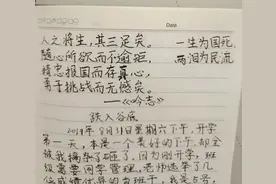 Data
人之将生,其三足矣。 一生为国死,
随心所欲而不逾距, 两泪为民流
精忠报国而存真心,
勇于挑战而无憾矣。
——《吟志》
跌入谷底
2019年8月31日星期六下午,开学
第一天,本是一个美好的下午,却全
被我搞杂了砸了,因为刚开学,班
级需要同学管理,老师选举了几
位成绩优异的当班干,我是5号,